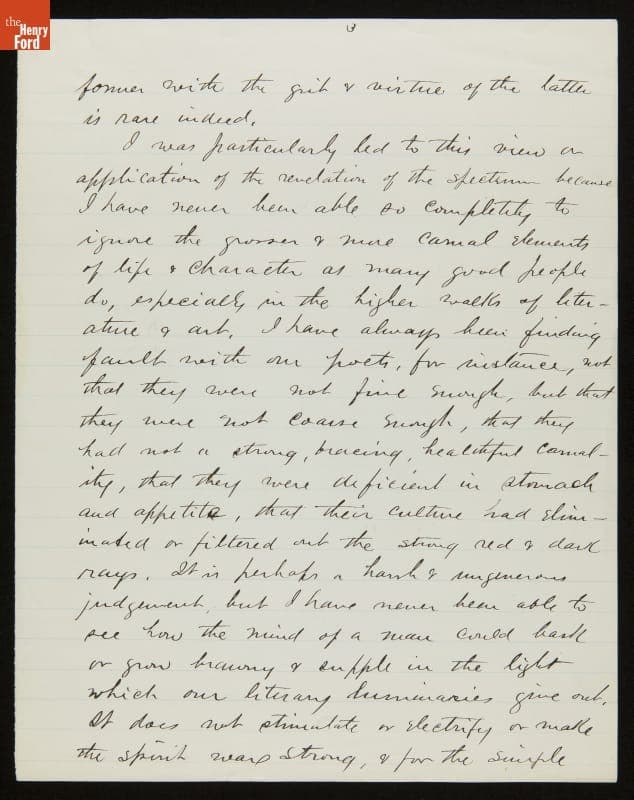 the
Henry
Ford
3
former with the grit & virtue of the latter
is rare indeed.
I was particularly led to this view or
application of the revelation of the spectrum because
I have never been able so completely to
ignore the grosser & more carnal elements
of life & character as many good people
do, especially in the higher walks of liter-
ature & art. I have always been finding
fault with our poets, for instance, not
that they were not fine enough, but that
they were not coarse enough, that they
had not a strong, bracing, healthful carnal-
ity, that they were deficient in stomach
and appetite, that their culture had elim-
inated or filtered out the strong red & dark
rays. It is perhaps a harsh & ungenerous
judgement, but I have never been able to
see how the mind of a man could bask
or grow brawny & supple in the light
which our literary luminaries give out.
It does not stimulate or electrify or make
the spirit wax strong, & for the simple